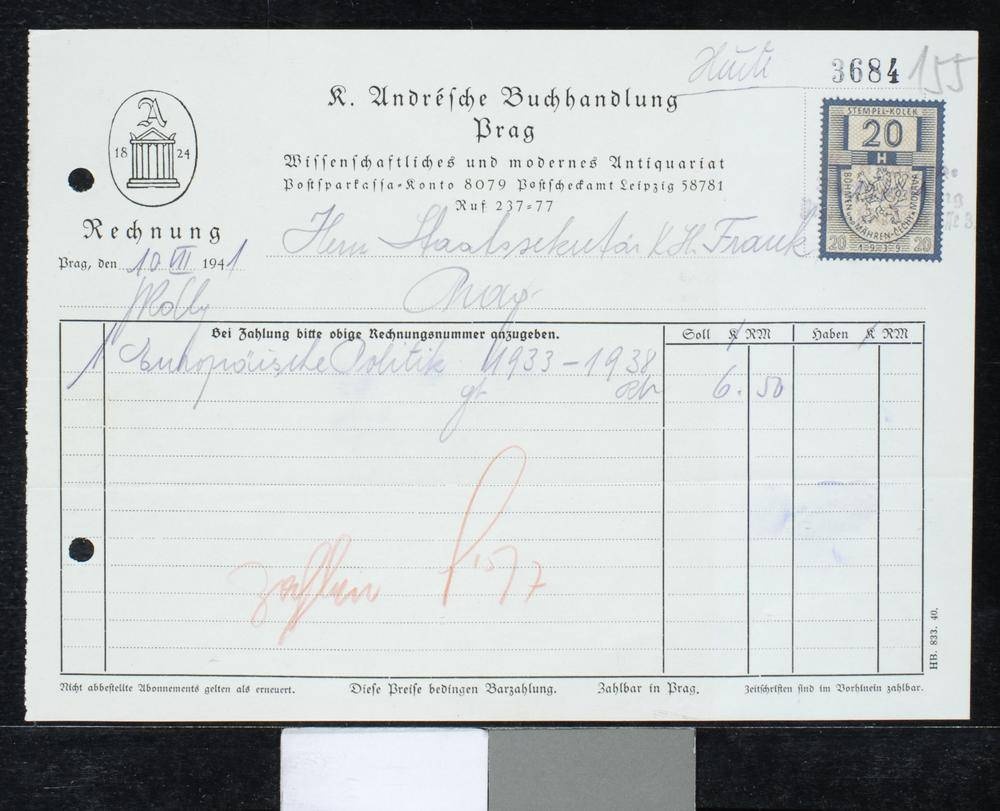 3684 155
STEMPEL-KOLEK
20
H
BÖHMEN und MÄHREN-ČECHY a MORAVA
20 1939 20
A
18 24
K. Andrésche Buchhandlung
Prag
Wissenschaftliches und modernes Antiquariat
Postsparkassa-Konto 8079 Postscheckamt Leipzig 58781
Ruf 237-77
Rechnung
Herrn Staatssekretär K. H. Frank
Prag, den 10 VII 1941
Prag
Bei Zahlung bitte obige Rechnungsnummer anzugeben. Soll K RM Haben K RM
1 Europäische Politik 1933-1938
6. 50
zahlen
Nicht abbestellte Abonnements gelten als erneuert. Diese Preise bedingen Barzahlung. Zahlbar in Prag. Zeitschriften sind im Vorhinein zahlbar.
HB. 833. 40.